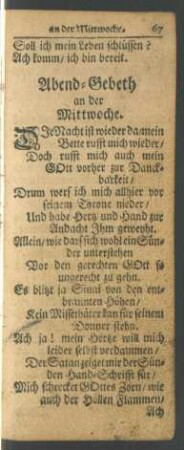 an der Mittwoche. 67
Soll ich mein Leben schlüssen?
Ach komm/ ich bin bereit.
Abend-Gebeth
an der
Mittwoche.
DJe Nacht ist wieder da/mein
Bette rufft mich wieder/
Doch rufft mich auch mein
GOtt vorher zur Danck-
barkeit/
Drum werf ich mich allhier vor
seinem Throne nieder/
Und habe Hertz und Hand zur
Andacht Jhm geweyht.
Allein/ wie darf sich wohl ein Sün-
der unterstehen
Vor den gerechten GOtt so
ungerecht zu gehn.
Es blitzt ja Sinai von den ent-
brannten Höhen/
Kein Missethäter kan für seinem
Donner stehn.
Ach ja! mein Hertze will mich
leider selbst verdammen/
Der Satan zeiget mir der Sün-
den Hand-Schrifft für/
Mich schrecket GOttes Zorn/ wie
auch der Höllen Flammen/
Ach